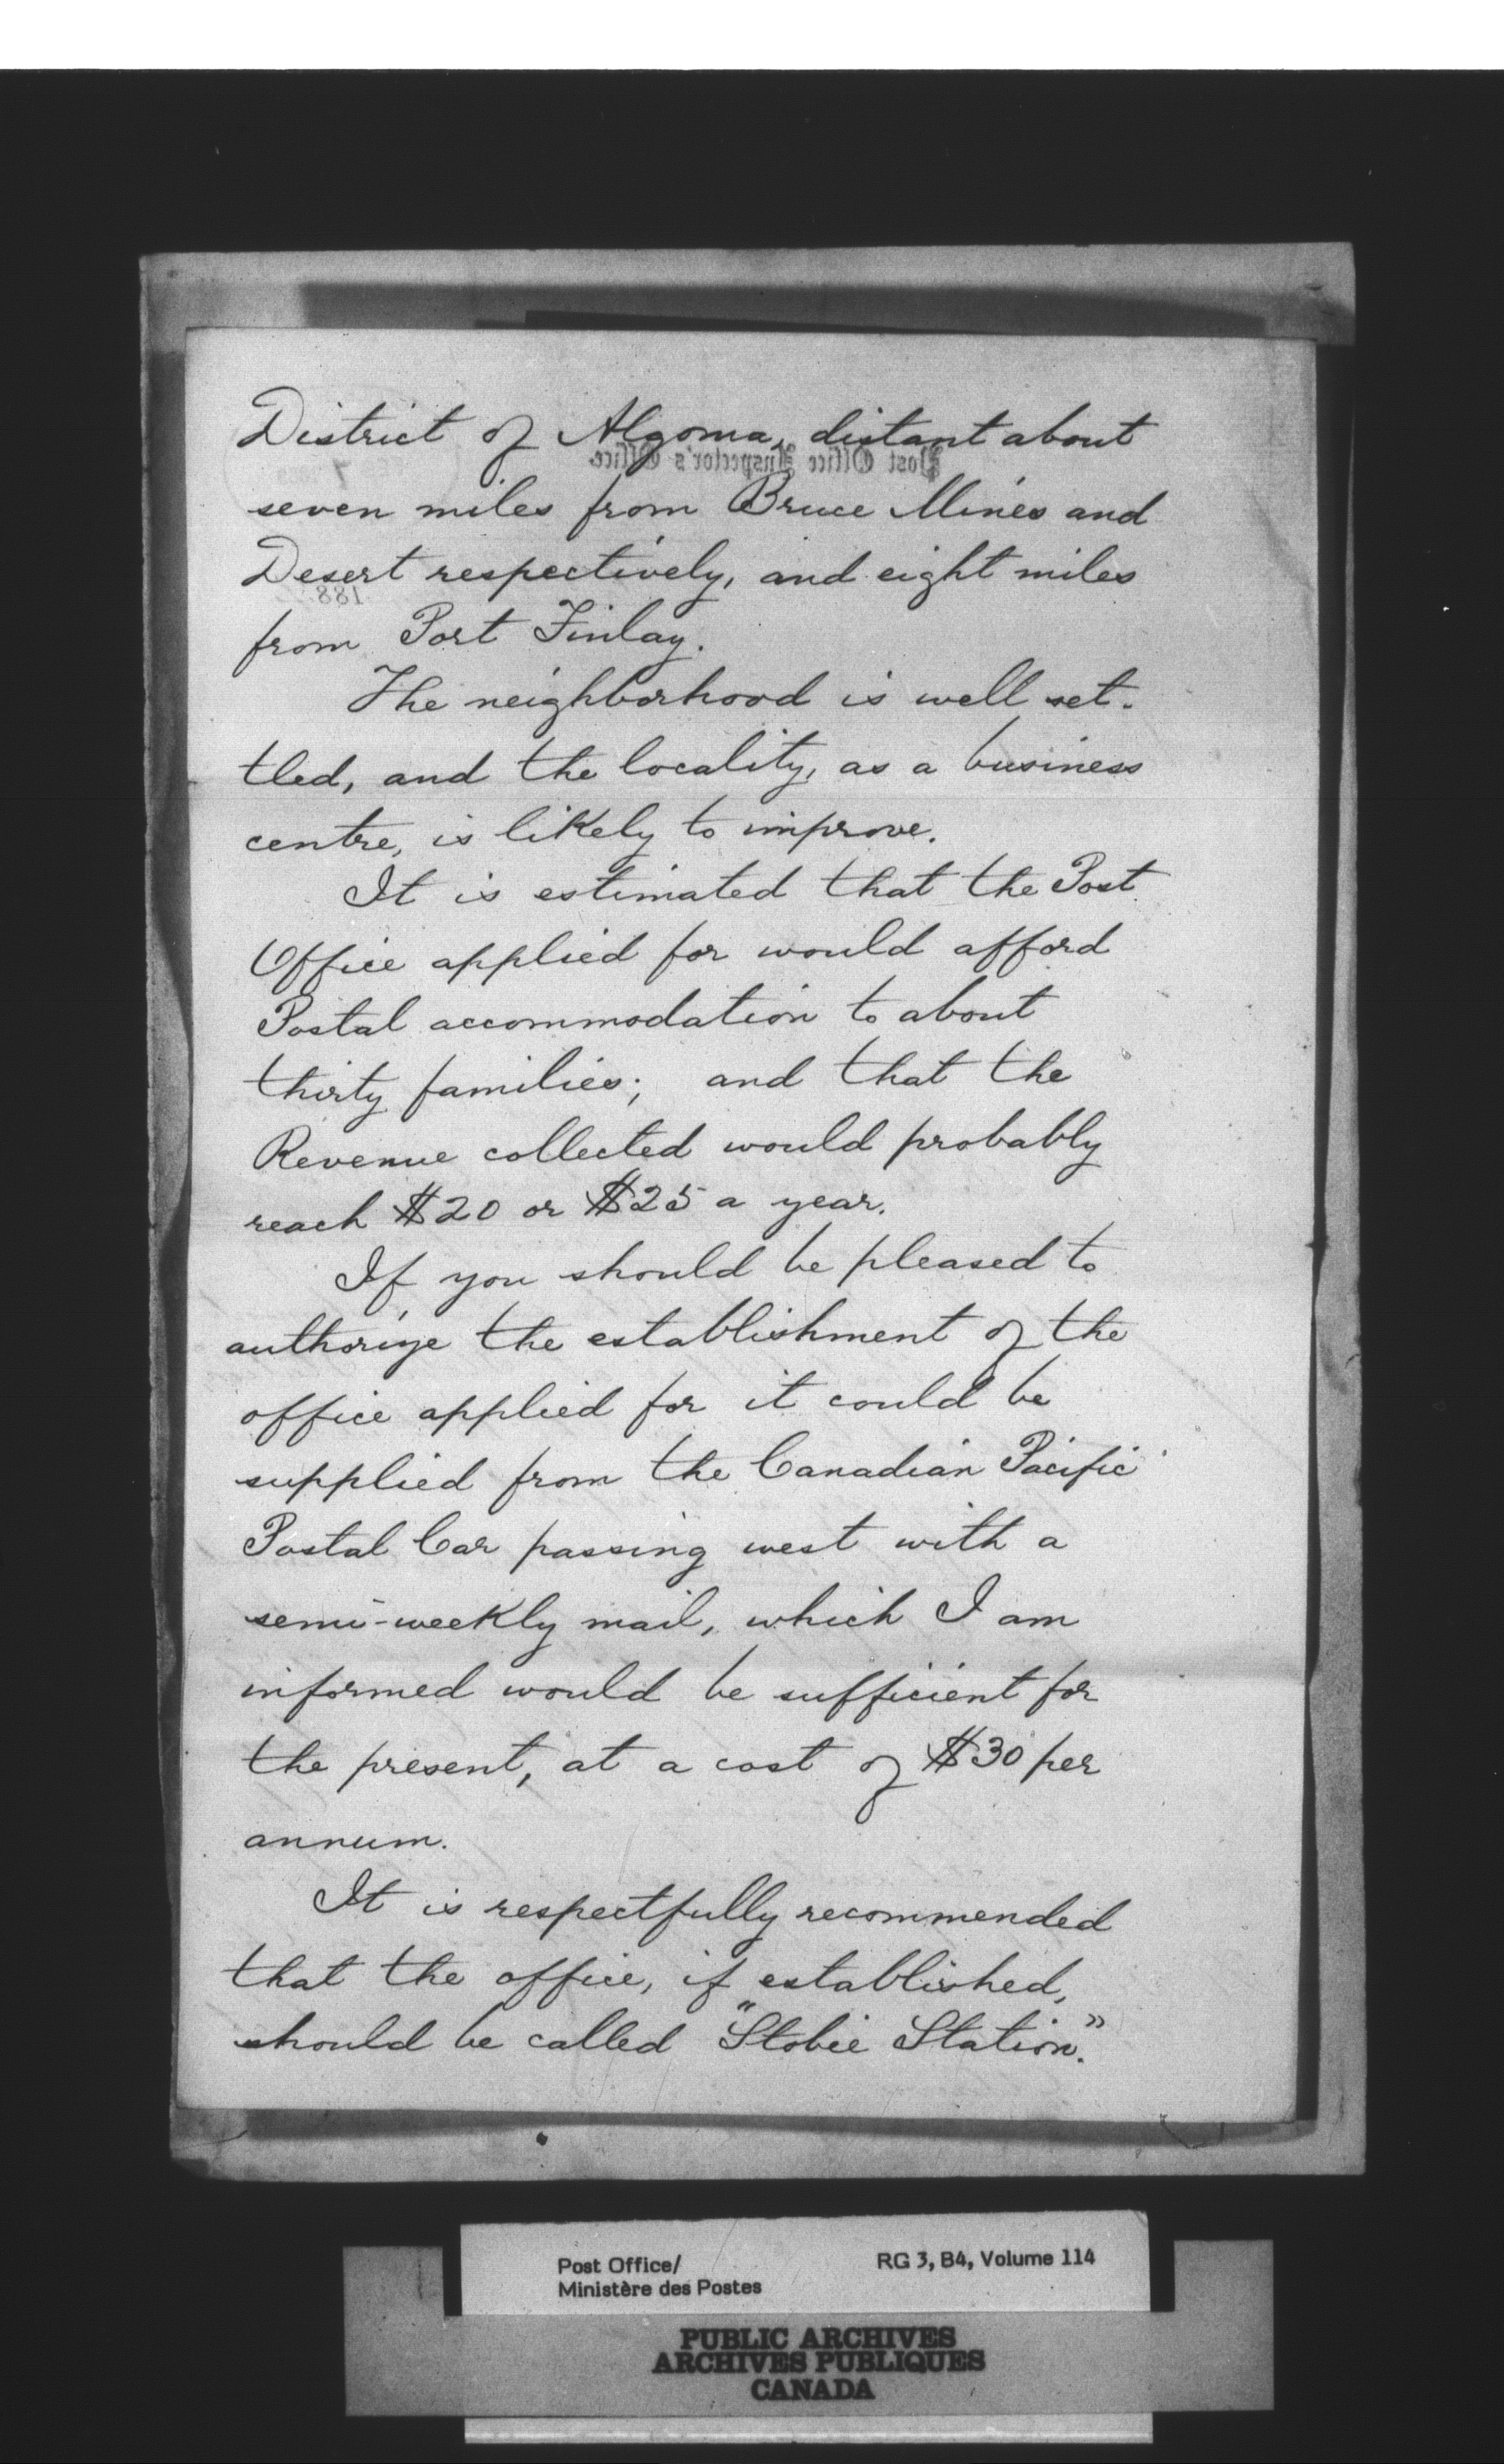 District of Algoma, distant about
Post Office Inspector's Office
seven miles from Bruce Mines and
Desert respectively, and eight miles
188
from Port Finlay.
The neighborhood is well set-
tled, and the locality, as a business
centre, is likely to improve.
It is estimated that the Post
Office applied for would afford
Postal accommodation to about
thirty families; and that the
Revenue collected would probably
reach $20 or $25 a year.
If you should be pleased to
authorize the establishment of the
office applied for it could be
supplied from the Canadian Pacific
Postal Car passing west with a
semi-weekly mail, which I am
informed would be sufficient for
the present, at a cost of $30 per
annum.
It is respectfully recommended
that the office, if established,
should be called "Stobie Station."
Post Office/
Ministère des Postes
RG 3, B4, Volume 114
PUBLIC ARCHIVES
ARCHIVES PUBLIQUES
CANADA